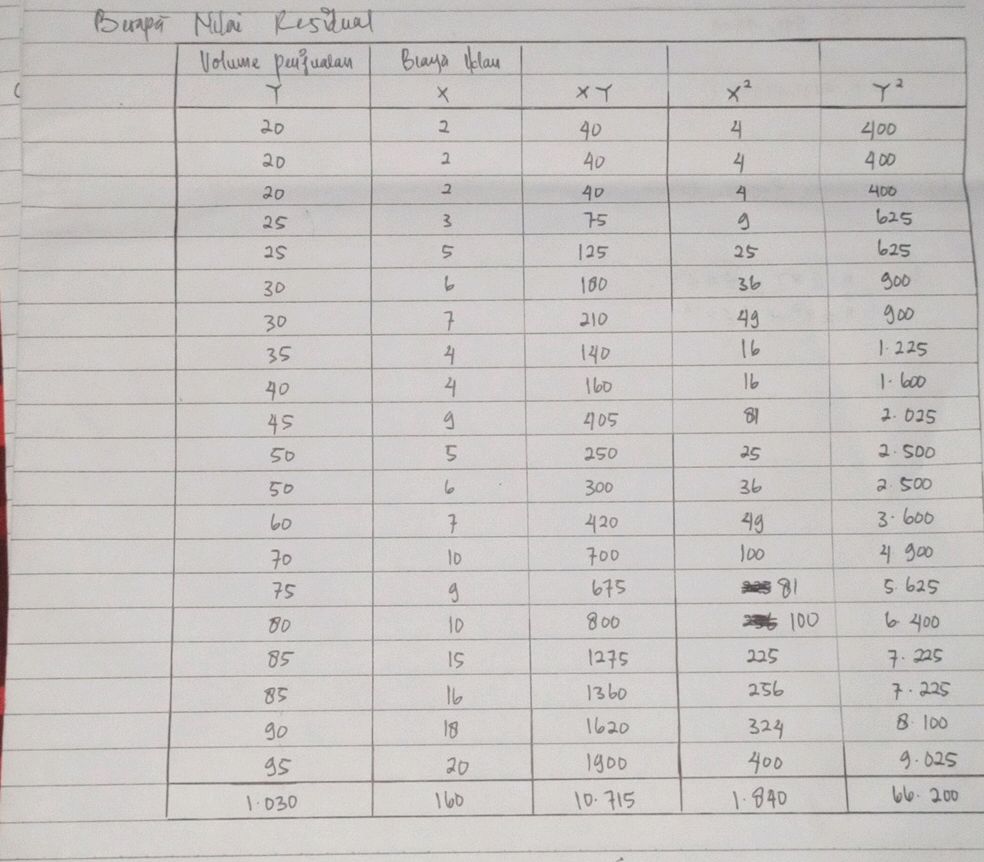 Berapa Nilai Residual
Volume penjualan Biaya Iklan
Y X XY X² Y²
20 2 40 4 400
20 2 40 4 400
20 2 40 4 400
25 3 75 9 625
25 5 125 25 625
30 6 180 36 900
30 7 210 49 900
35 4 140 16 1.225
40 4 160 16 1.600
45 9 405 81 2.025
50 5 250 25 2.500
50 6 300 36 2.500
60 7 420 49 3.600
70 10 700 100 4 900
75 9 675 81 5.625
80 10 800 100 6 400
85 15 1275 225 7.225
85 16 1360 256 7.225
90 18 1620 324 8.100
95 20 1900 400 9.025
1.030 160 10.715 1.840 66.200